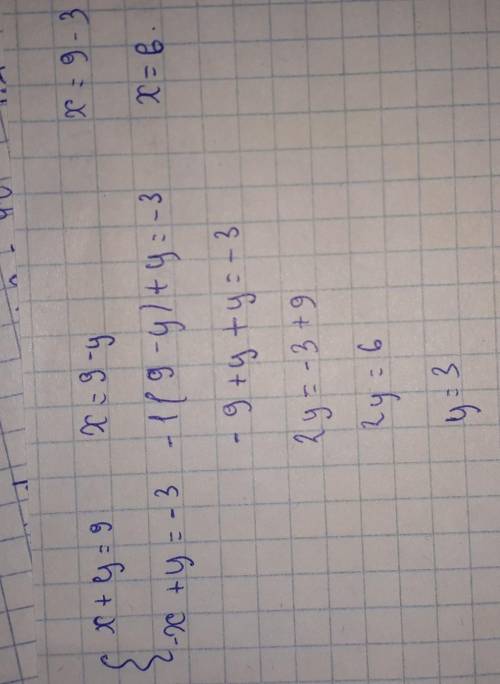 { x + y = 9
-x + y = -3
x = 9 - y
-1(9 - y) + y = -3
-9 + y + y = -3
2y = -3 + 9
2y = 6
y = 3
x = 9 - 3
x = 6.